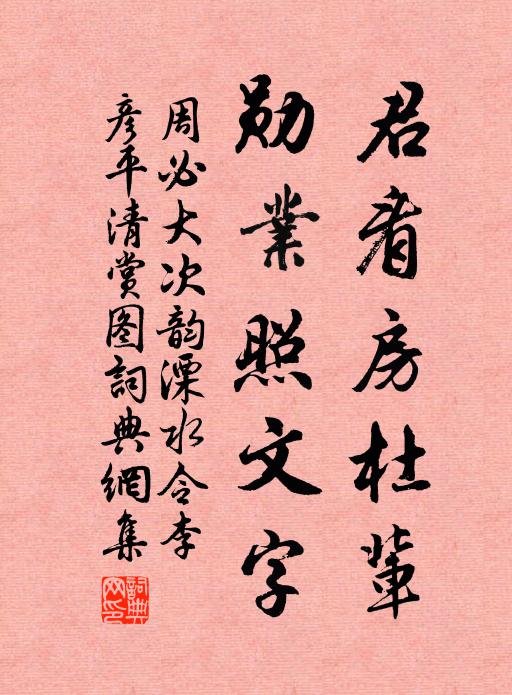 君看房杜輩
勛業照文字
周必大次韵溧水令李
彦平清賞图詞典網集
詞典網印